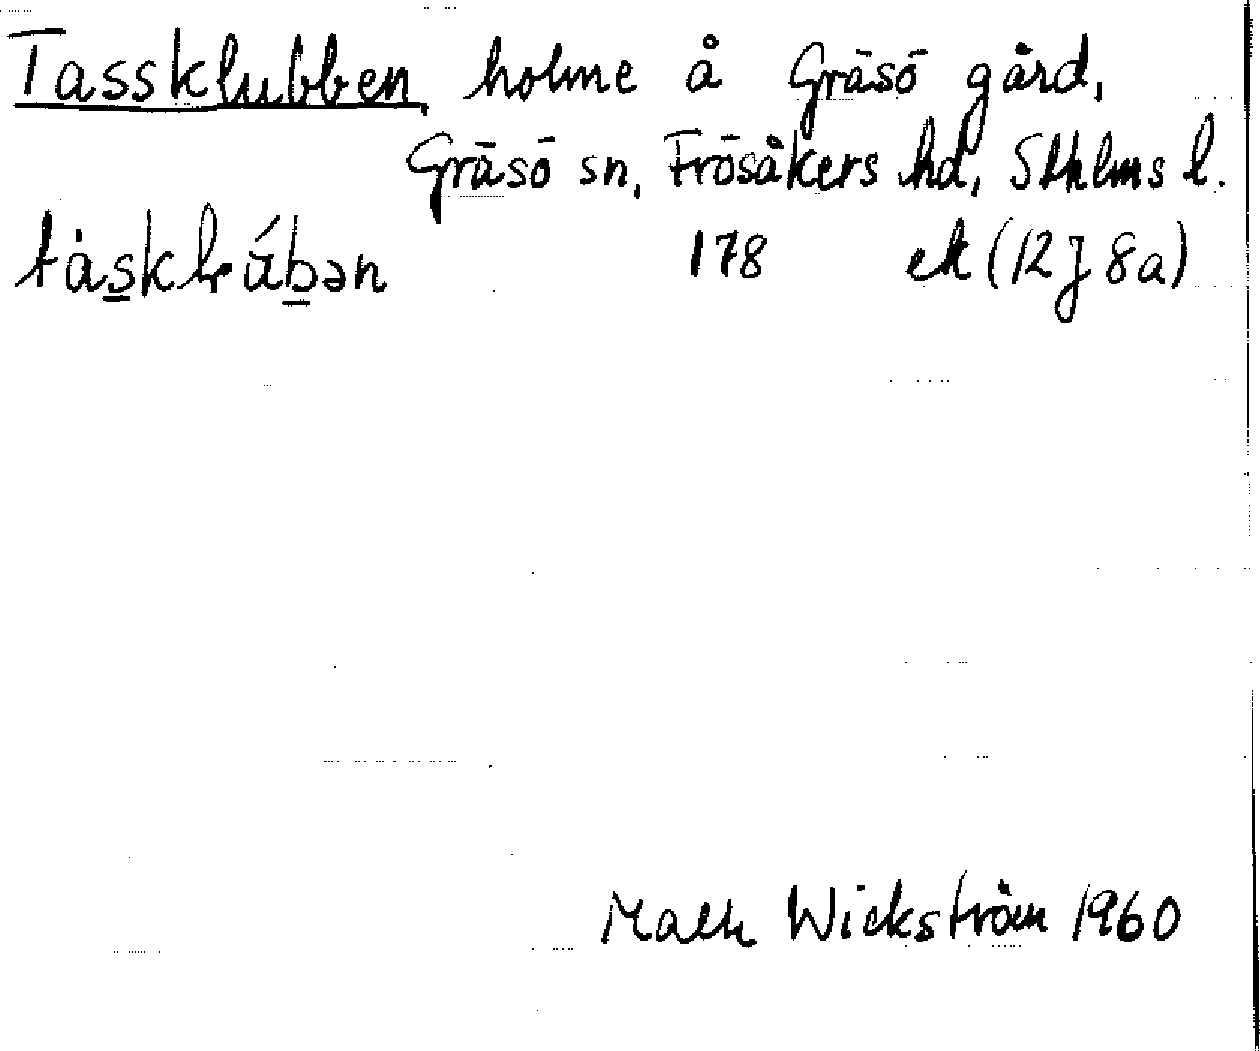 Tassklubben, holme å Gräsö gård,
Gräsö sn, Frösåkers hd, Sthlms l.
tàs̲klúb̲ən 178 ek (12J 8a)
Wickström 1960